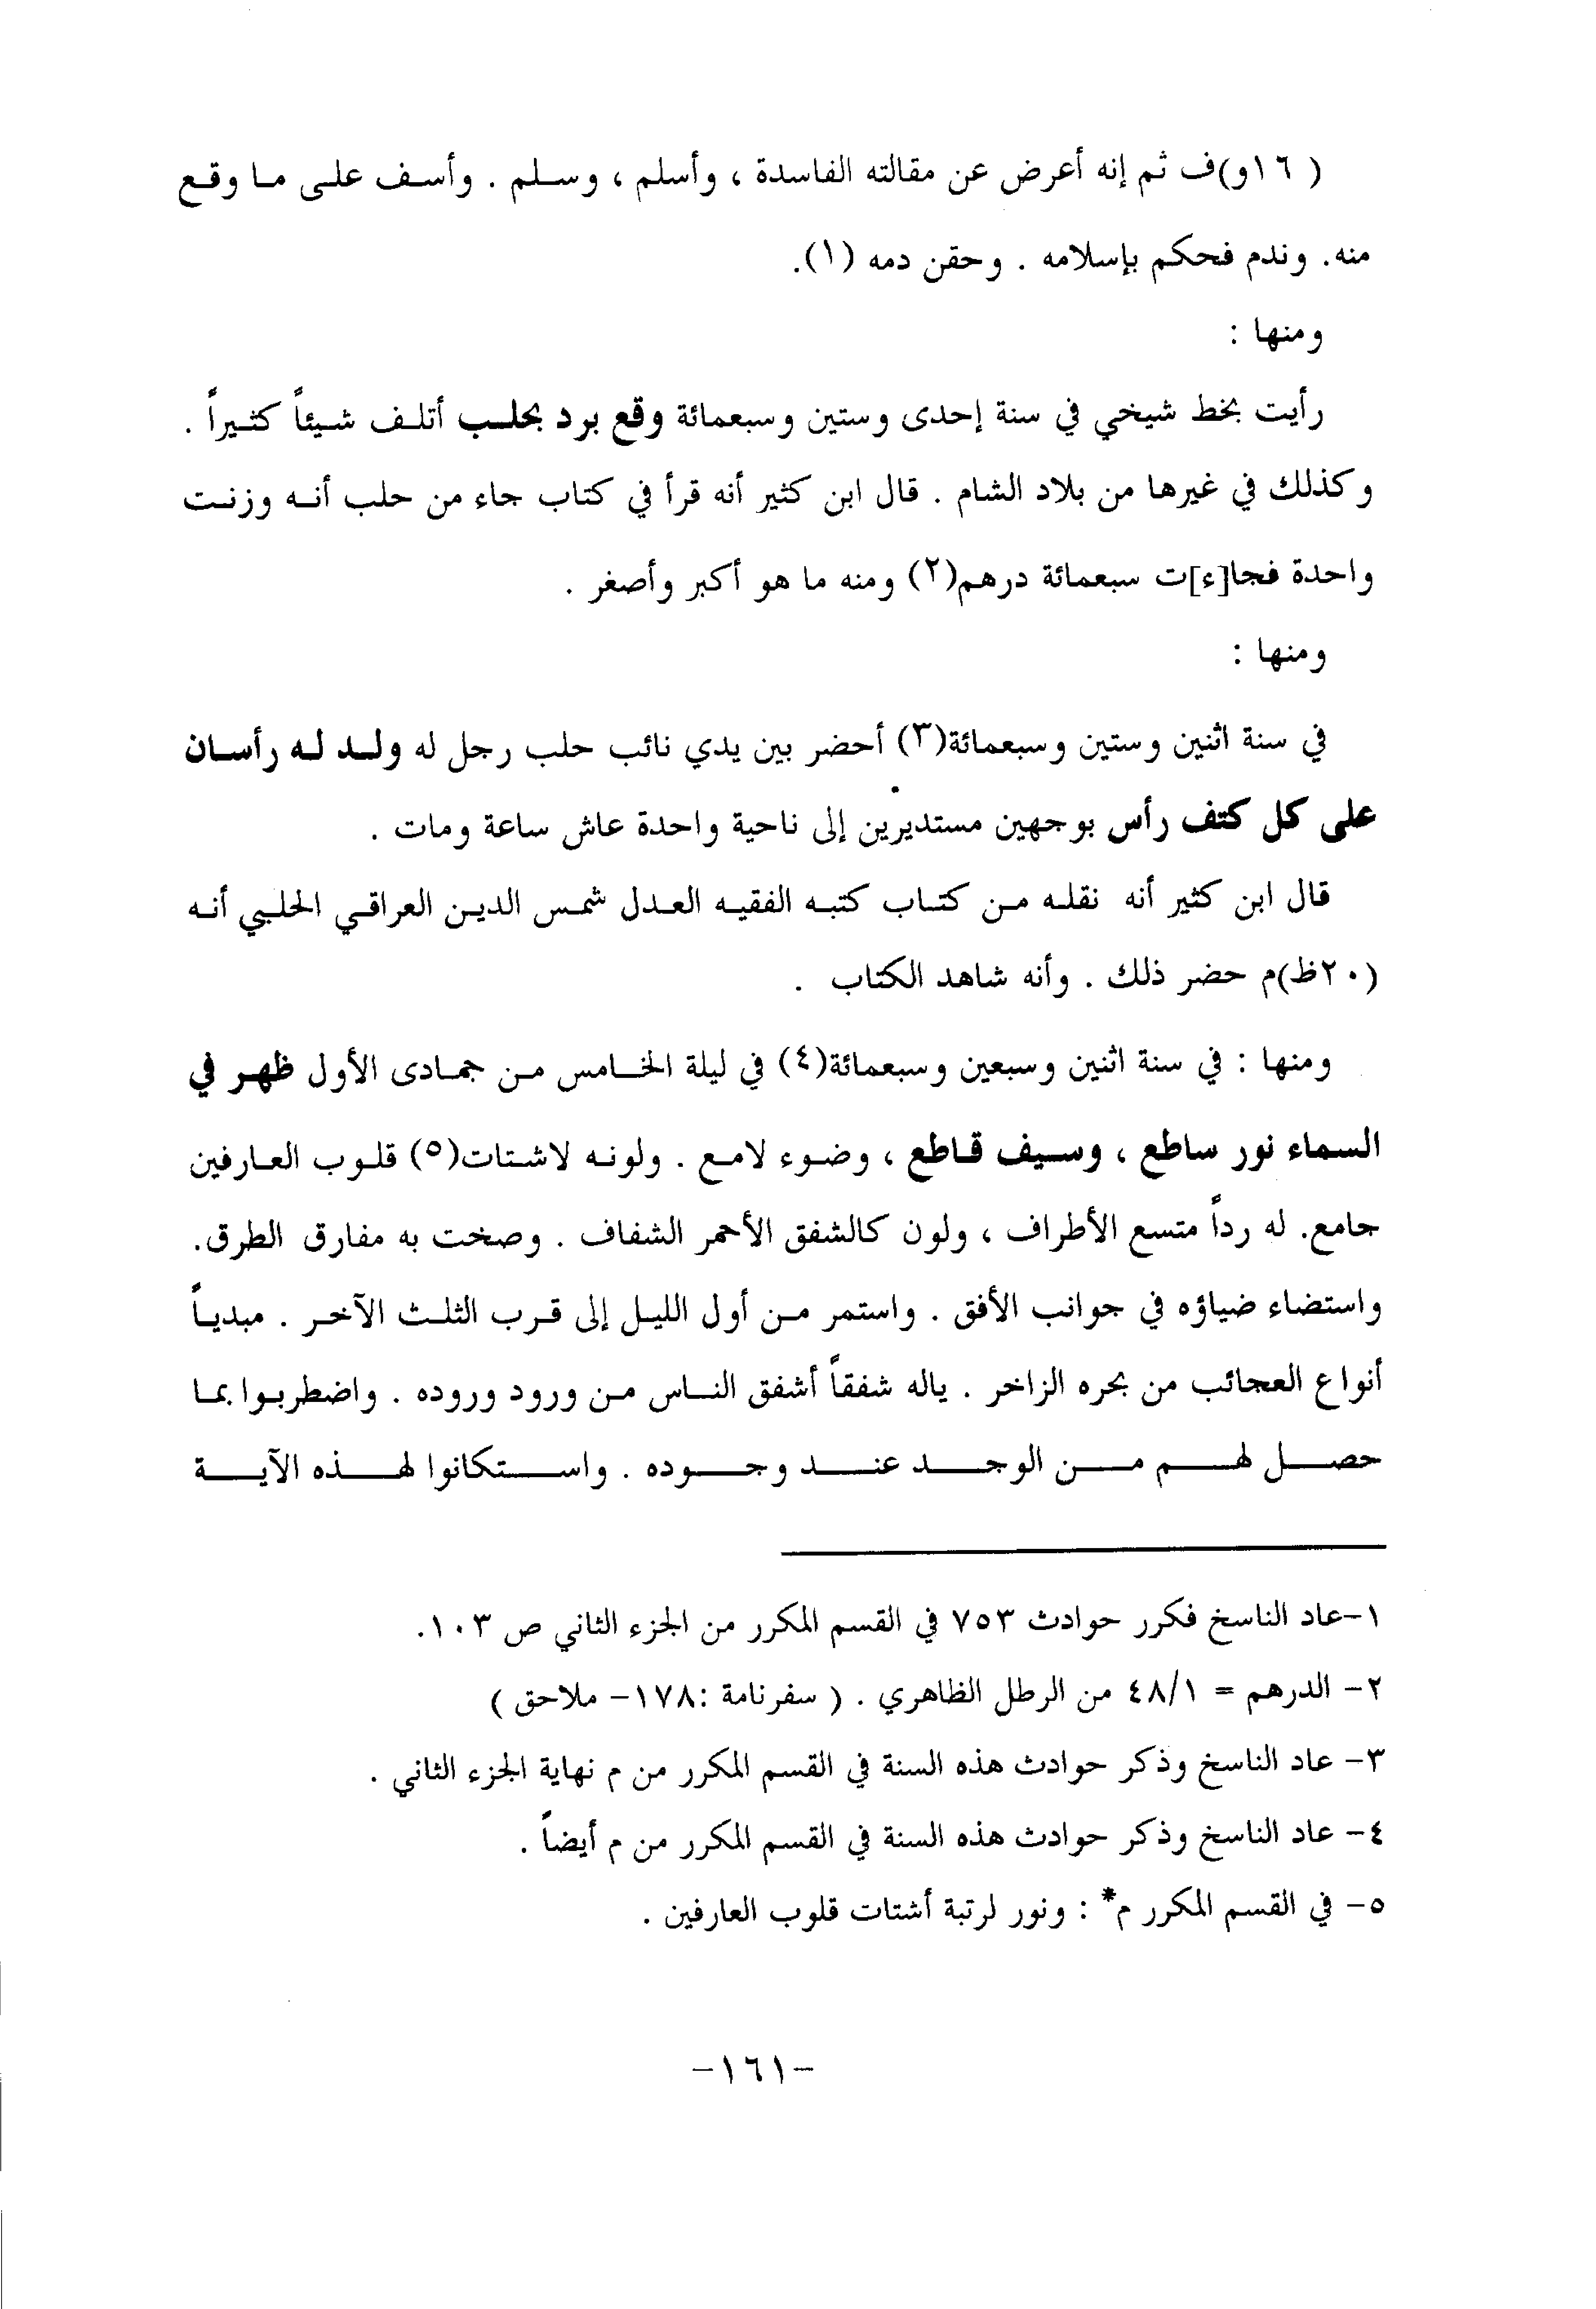 ( ١٦و)ف ثم إنه أعرض عن مقالته الفاسدة ، وأسلم ، وسلم . وأسف على ما وقع
منه. وندم فحكم بإسلامه . وحقن دمه (١).
ومنها :
رأيت بخط شيخي في سنة إحدى وستين وسبعمائة وقع برد بحلب أتلف شيئاً كثيراً .
وكذلك في غيرها من بلاد الشام . قال ابن كثير أنه قرأ في كتاب جاء من حلب أنه وزنت
واحدة فجا[ء]ت سبعمائة درهم(٢) ومنه ما هو أكبر وأصغر .
ومنها :
في سنة اثنين وستين وسبعمائة(٣) أحضر بين يدي نائب حلب رجل له ولد له رأسان
على كل كتف رأس بوجهين مستديرين إلى ناحية واحدة عاش ساعة ومات .
قال ابن كثير أنه نقله من كتاب كتبه الفقيه العدل شمس الدين العراقي الحلبي أنه
(٢٠ظ)م حضر ذلك . وأنه شاهد الكتاب .
ومنها : في سنة اثنين وسبعين وسبعمائة(٤) في ليلة الخامس من جمادى الأول ظهر في
السماء نور ساطع ، وسيف قاطع ، وضوء لامع . ولونه لاشتات(٥) قلوب العارفين
جامع. له رداً متسع الأطراف ، ولون كالشفق الأحمر الشفاف . وصخت به مفارق الطرق.
واستضاء ضياؤه في جوانب الأفق . واستمر من أول الليل إلى قرب الثلث الآخر . مبدياً
أنواع العجائب من بحره الزاخر . ياله شفقاً أشفق الناس من ورود وروده . واضطربوا بما
حصل لهم من الوجد عند وجوده . واستكانوا لهذه الآية
١-عاد الناسخ فكرر حوادث ٧٥٣ في القسم المكرر من الجزء الثاني ص ١٠٣.
٢- الدرهم = ٤٨/١ من الرطل الظاهري . ( سفرنامة :١٧٨- ملاحق )
٣- عاد الناسخ وذكر حوادث هذه السنة في القسم المكرر من م نهاية الجزء الثاني .
٤- عاد الناسخ وذكر حوادث هذه السنة في القسم المكرر من م أيضاً .
٥- في القسم المكرر م* : ونور لرتبة أشتات قلوب العارفين .
-١٦١-